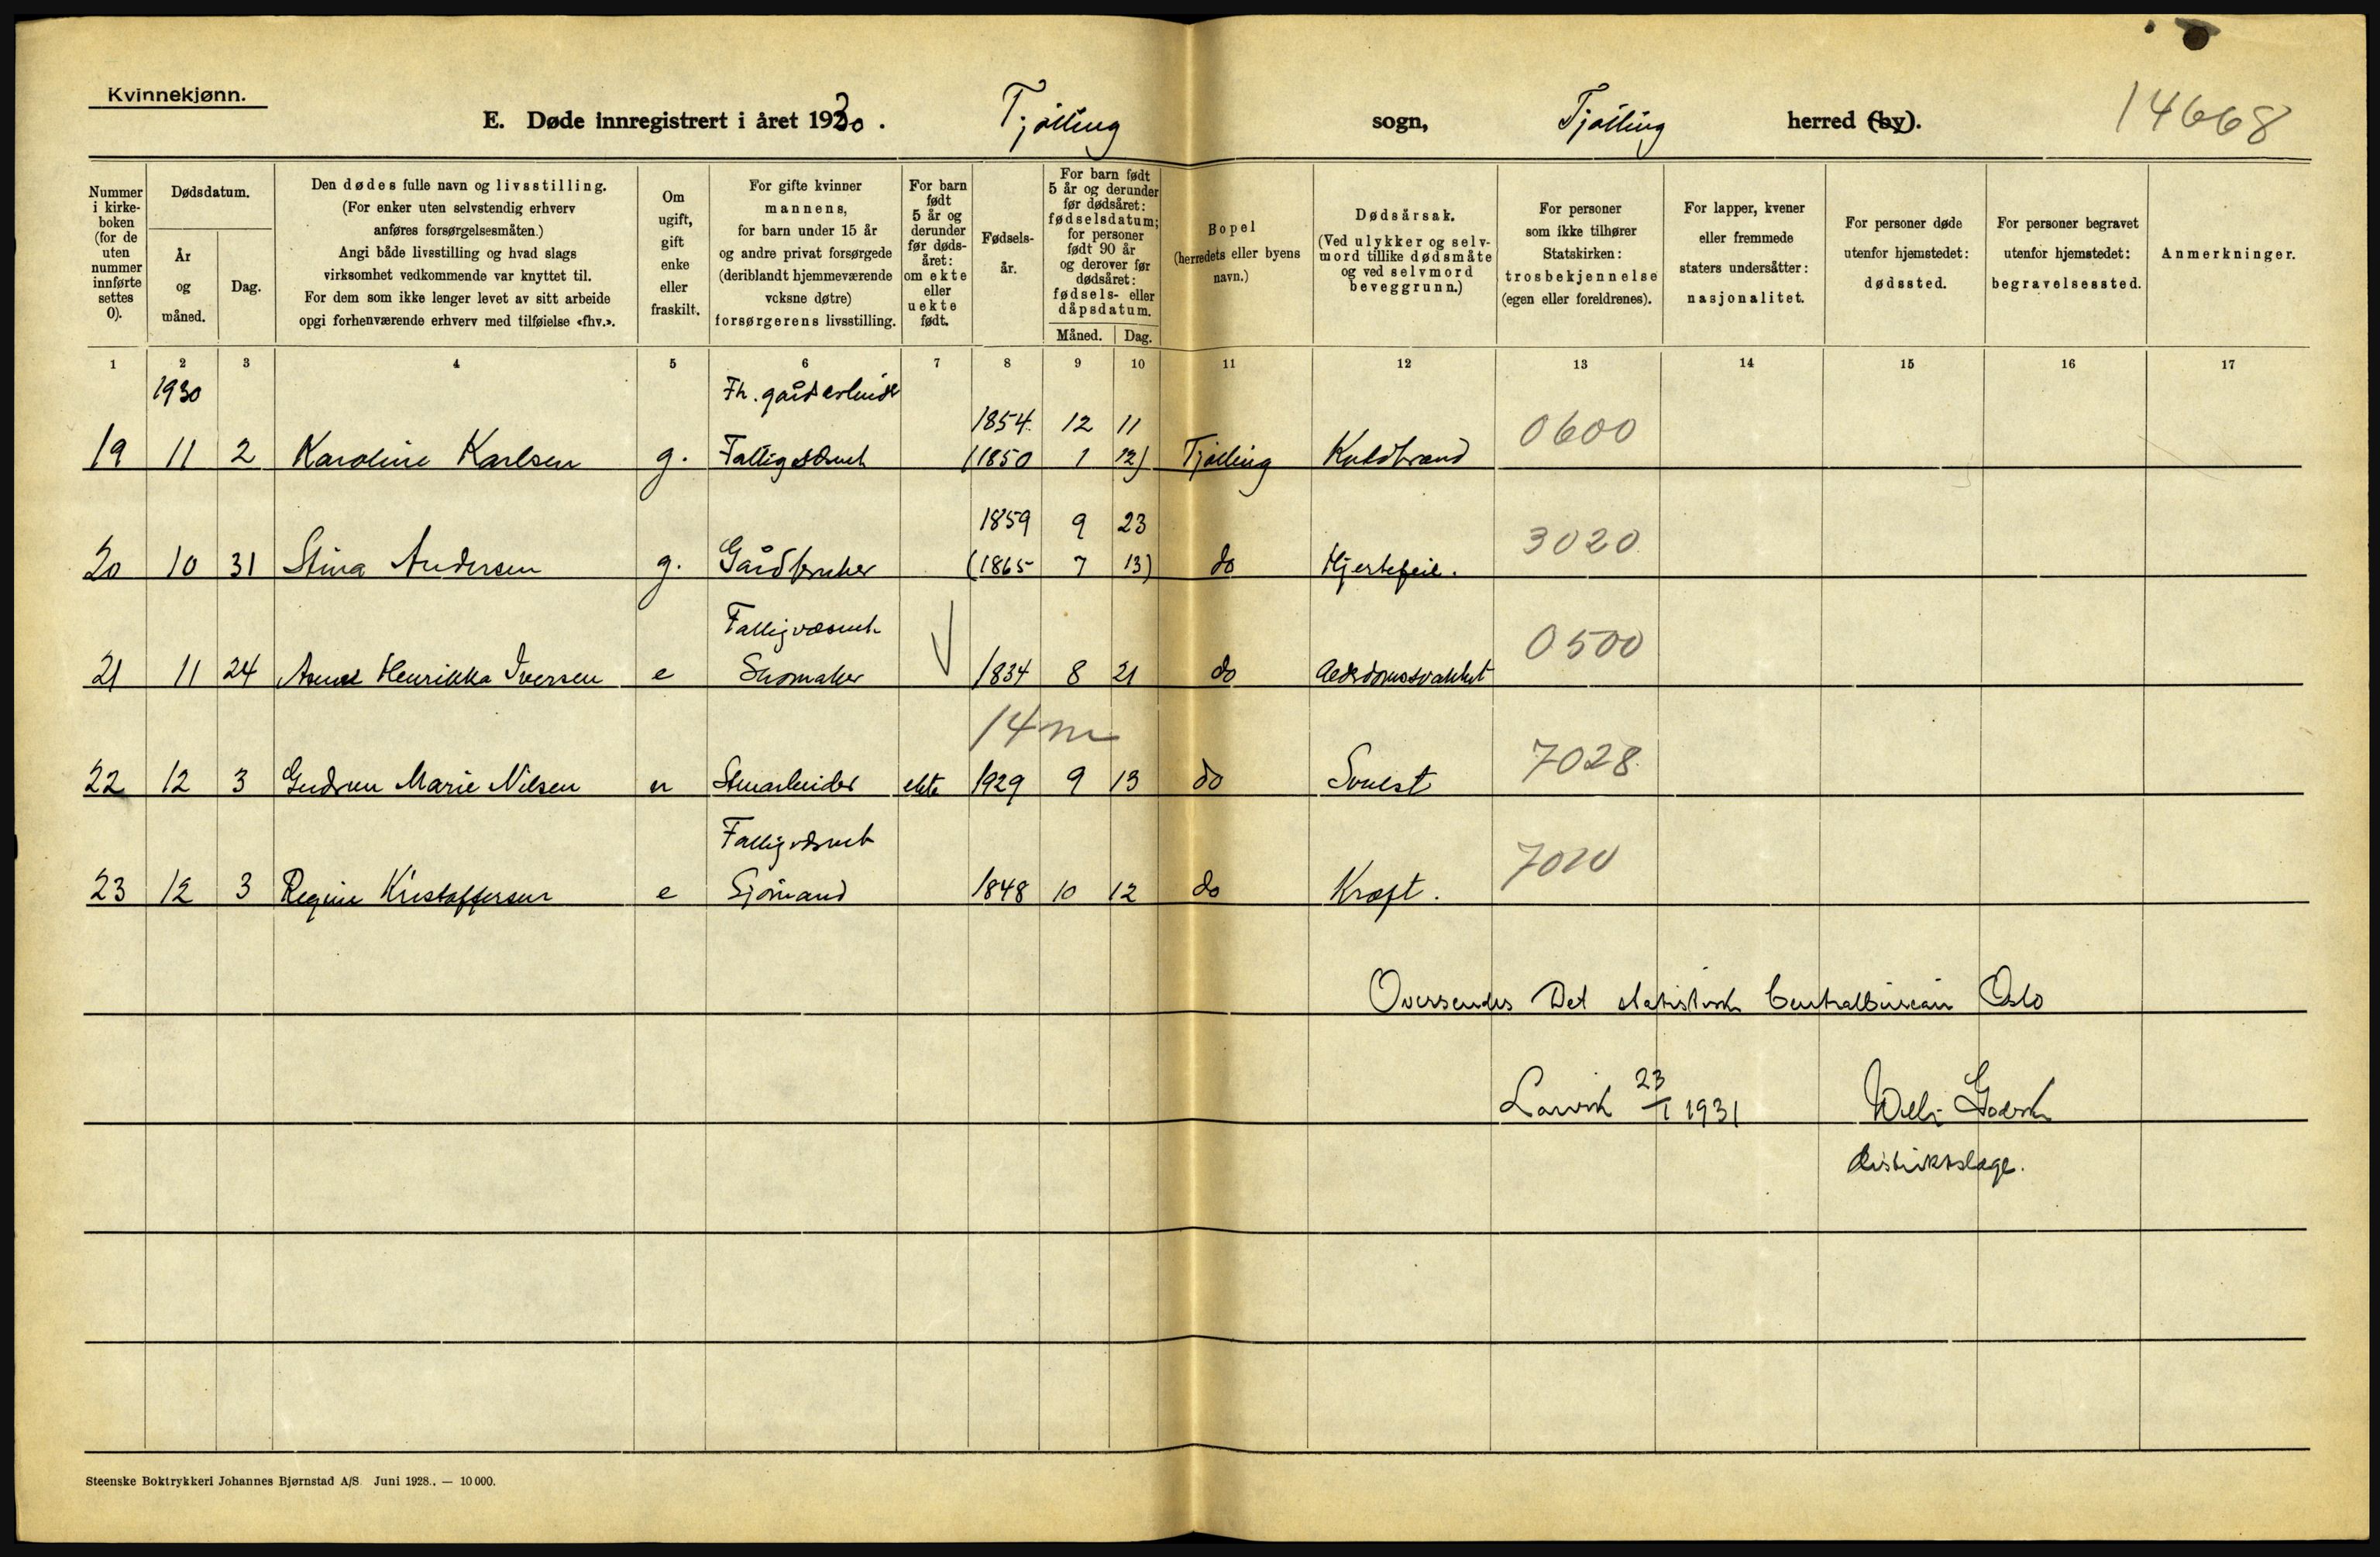 Kvinnekjønn.
E. Døde innregistrert i året 1930. Tjølling sogn, Tjølling herred (by).
14668
Nummer i kirke- boken (for de uten nummer innførte settes 0).
Dødsdatum.
År og måned.
Dag.
Den dødes fulle navn og livsstilling.
(For enker uten selvstendig erhverv
anføres forsørgelsesmåten.)
Angi både livsstilling og hvad slags
virksomhet vedkommende var knyttet til.
For dem som ikke lenger levet av sitt arbeide
opgi forhenværende erhverv med tilføielse «fhv.».
Om ugift, gift enke eller fraskilt.
For gifte kvinner
mannens,
for barn under 15 år
og andre privat forsørgede
(deriblandt hjemmeværende
voksne døtre)
forsørgerens livsstilling.
For barn født 5 år og derunder før døds- året: om ekte eller uekte født.
Fødsels- år.
For barn født
5 år og derunder
før dødsåret:
fødselsdatum;
for personer
født 90 år
og derover før
dødsåret:
fødsels- eller
dåpsdatum.
Måned. Dag.
Bopel
(herredets eller byens
navn.)
Dødsårsak.
(Ved ulykker og selv-
mord tillike dødsmåte
og ved selvmord
beveggrunn.)
For personer
som ikke tilhører
Statskirken:
trosbekjennelse
(egen eller foreldrenes).
For lapper, kvener
eller fremmede
staters undersåtter:
nasjonalitet.
For personer døde
utenfor hjemstedet:
dødssted.
For personer begravet
utenfor hjemstedet:
begravelsessted.
Anmerkninger.
1 2 3 4 5 6 7 8 9 10 11 12 13 14 15 16 17
1930 Fh. gårdarbeider
1854 12 11 0600
19 11 2 Karoline Karlsen g. Fattigvæsnet (1850 1 12) Tjølling Koldbrand
1859 9 23 3020
20 10 31 Stina Andersen g. Gårdbruker (1865 7 13) do Hjertefeil.
Fattigvæsnet 0500
21 11 24 Henrikka Iversen e Skomaker 1834 8 21 do Alderdomssvakhet
14 m
22 12 3 Gudrun Marie Nilsen u Stenarbeider ekte 1929 9 13 do Svulst 7028
Fattigvæsnet
23 12 3 Regine Kristoffersen e Sjømand 1848 10 12 do Kræft. 7020
Oversendes Det statistiske Centralbureau Oslo
Larvik 23/1 1931
distriktslæge.
Steenske Boktrykkeri Johannes Bjørnstad A/S. Juni 1928.. — 10 000.